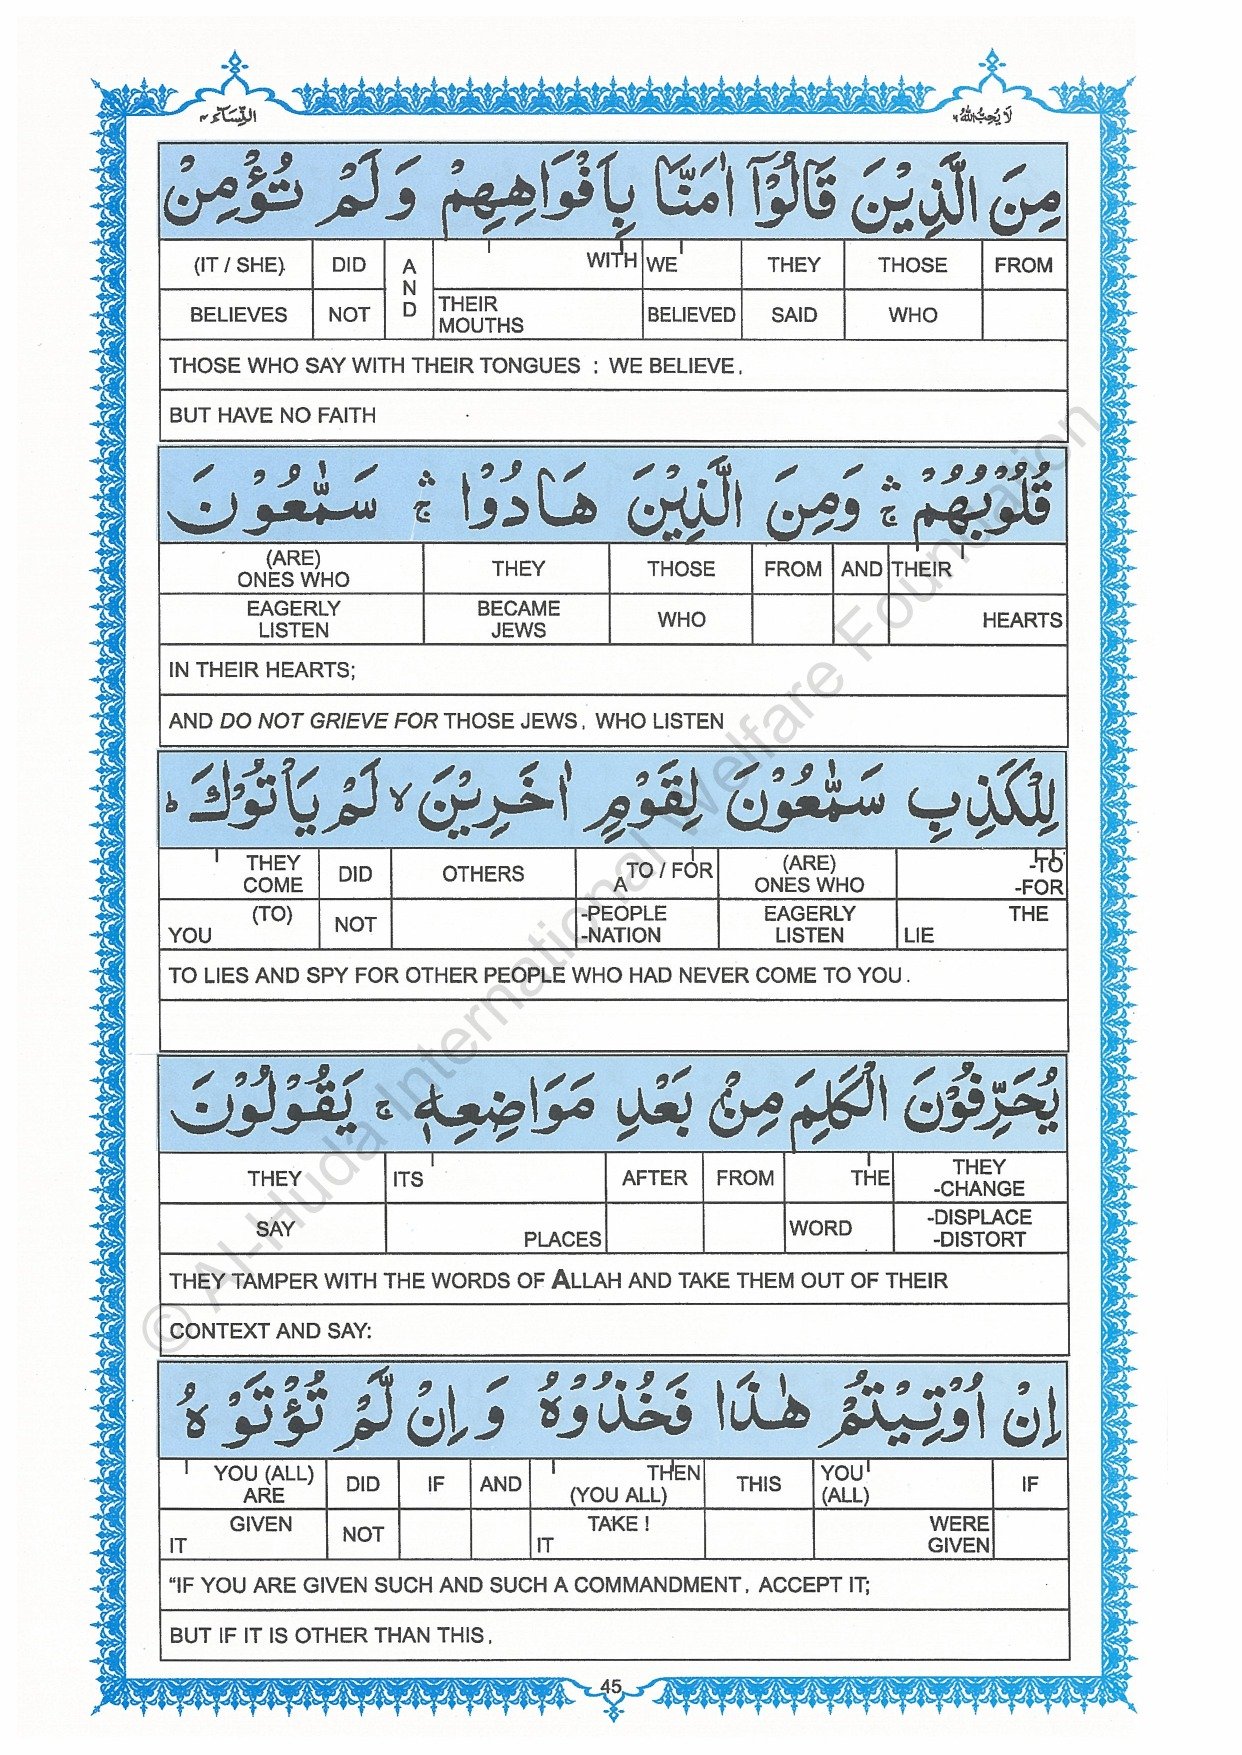 النِّسَآء ٤
لَا يُحِبُّ اللّٰهُ ٦
مِنَ الَّذِيْنَ قَالُوْٓا اٰمَنَّا بِاَفْوَاهِهِمْ وَلَمْ تُؤْمِنْ
(IT / SHE) DID A N D WITH WE THEY THOSE FROM
BELIEVES NOT THEIR MOUTHS BELIEVED SAID WHO
THOSE WHO SAY WITH THEIR TONGUES : WE BELIEVE,
BUT HAVE NO FAITH
قُلُوْبُهُمْ ۛۚ وَمِنَ الَّذِيْنَ هَادُوْا ۛۚ سَمّٰعُوْنَ
(ARE) ONES WHO THEY THOSE FROM AND THEIR
EAGERLY LISTEN BECAME JEWS WHO HEARTS
IN THEIR HEARTS;
AND DO NOT GRIEVE FOR THOSE JEWS, WHO LISTEN
لِلْكَذِبِ سَمّٰعُوْنَ لِقَوْمٍ اٰخَرِيْنَ ۙ لَمْ يَاْتُوْكَ ؕ
THEY COME DID OTHERS TO / FOR A (ARE) ONES WHO -TO -FOR
(TO) YOU NOT -PEOPLE -NATION EAGERLY LISTEN THE LIE
TO LIES AND SPY FOR OTHER PEOPLE WHO HAD NEVER COME TO YOU.
يُحَرِّفُوْنَ الْكَلِمَ مِنْۢ بَعْدِ مَوَاضِعِهٖ ۚ يَقُوْلُوْنَ
THEY ITS AFTER FROM THE THEY -CHANGE
SAY PLACES WORD -DISPLACE -DISTORT
THEY TAMPER WITH THE WORDS OF ALLAH AND TAKE THEM OUT OF THEIR
CONTEXT AND SAY:
اِنْ اُوْتِيْتُمْ هٰذَا فَخُذُوْهُ وَاِنْ لَّمْ تُؤْتَوْهُ
YOU (ALL) ARE DID IF AND THEN (YOU ALL) THIS YOU (ALL) IF
GIVEN IT NOT TAKE ! IT WERE GIVEN
“IF YOU ARE GIVEN SUCH AND SUCH A COMMANDMENT, ACCEPT IT;
BUT IF IT IS OTHER THAN THIS,
45
© Al-Huda International Welfare Foundation